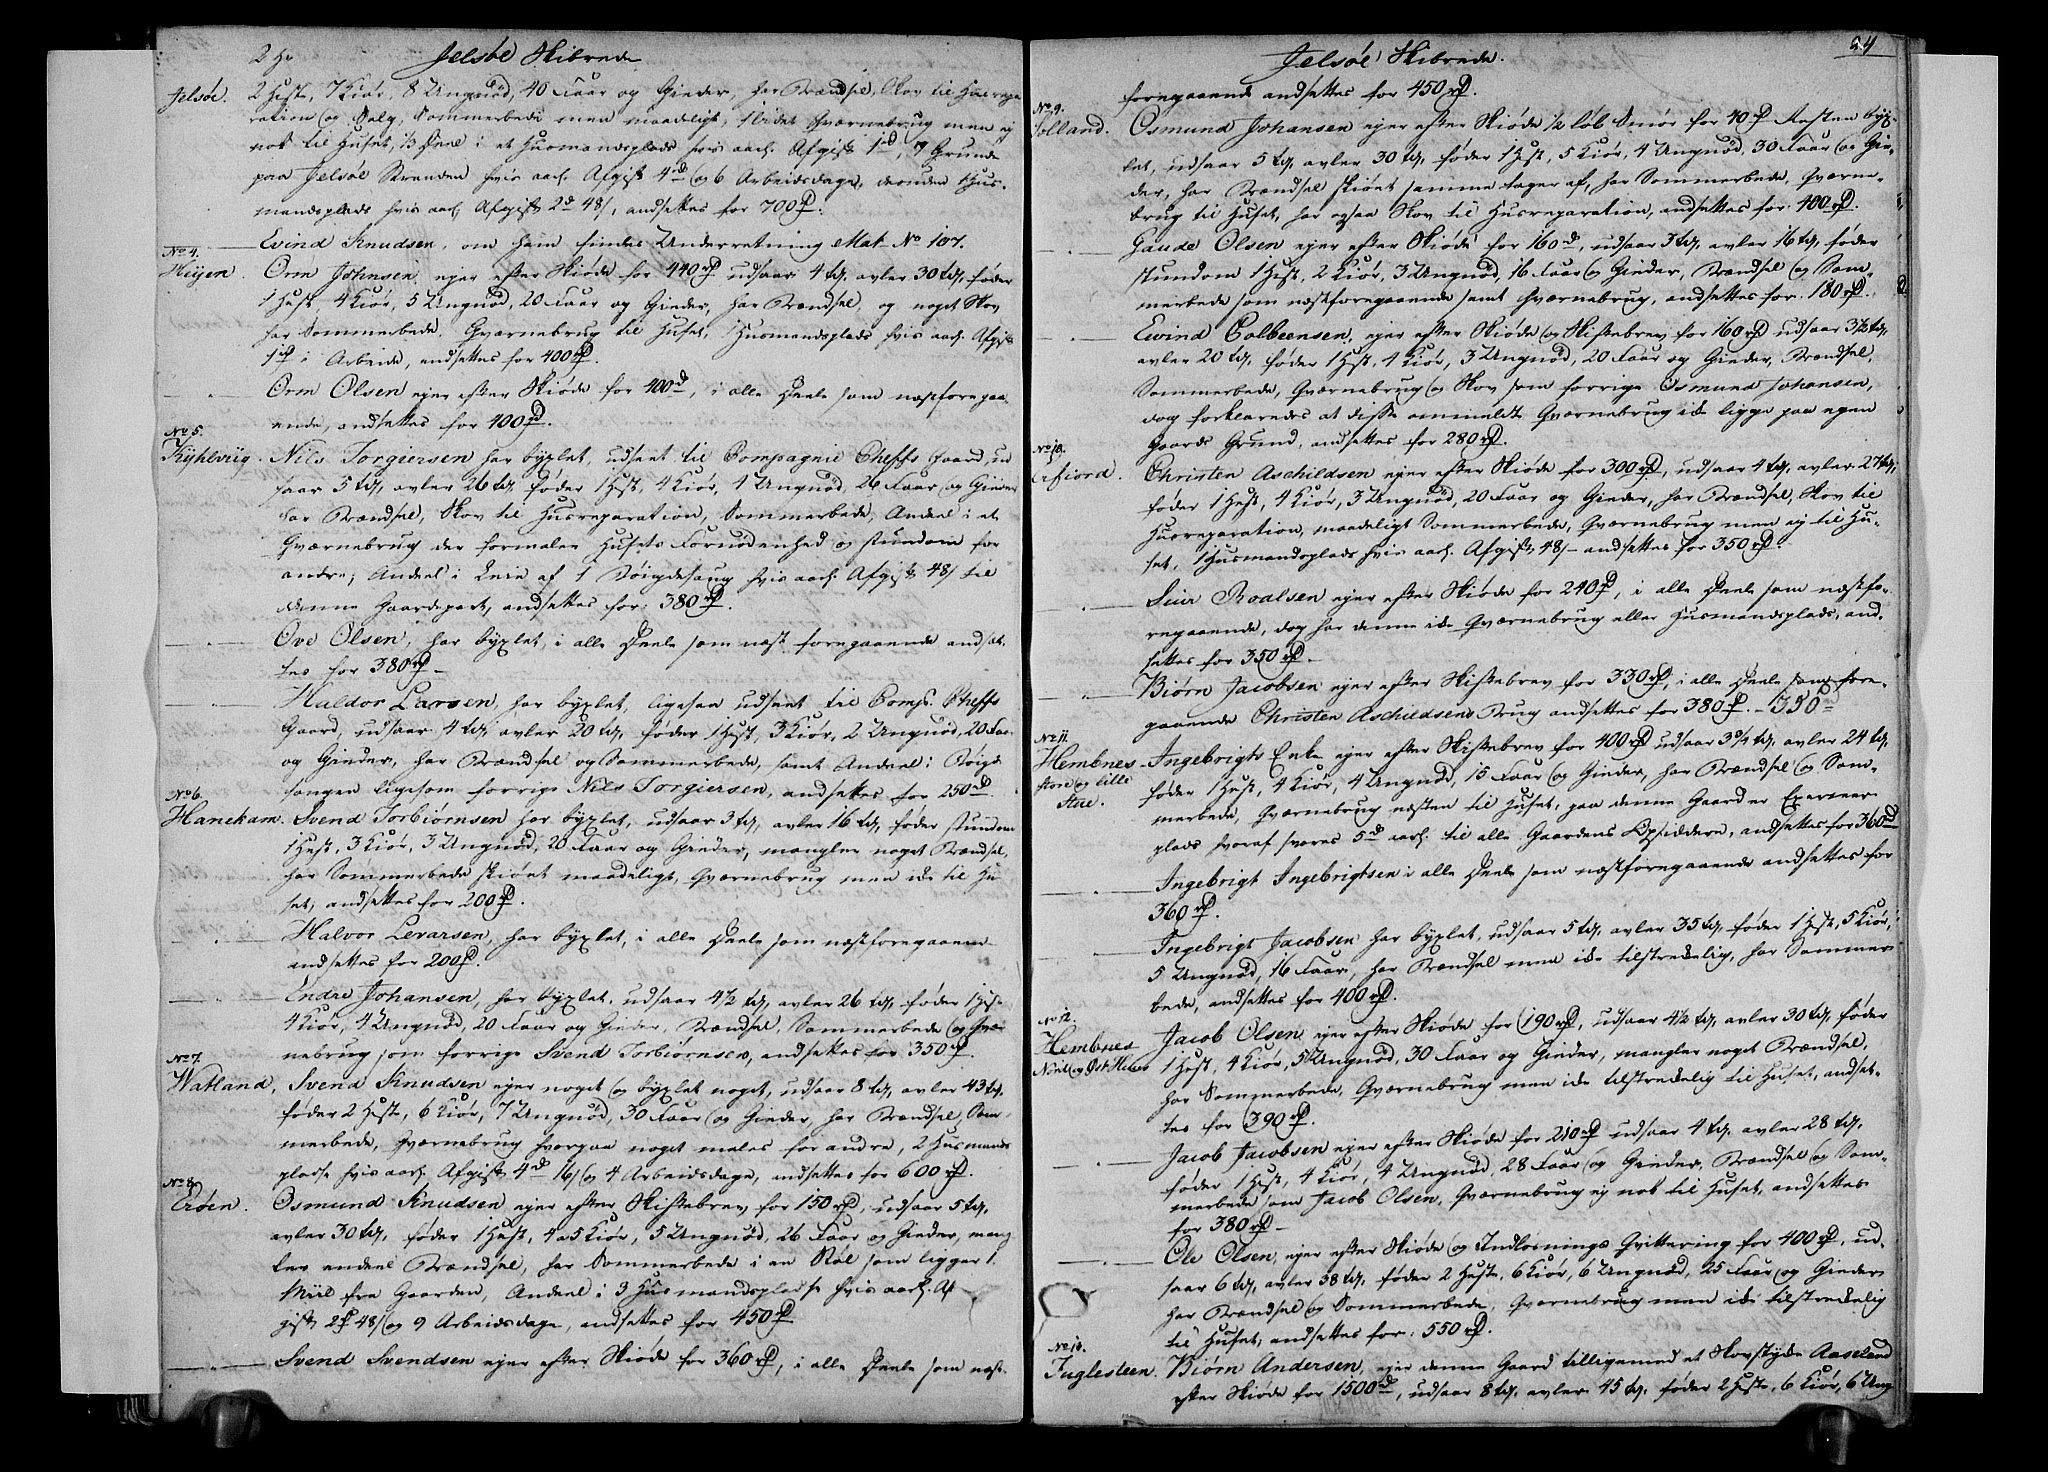 2 He
Jelsøe Skibrede
Jelsøe. 2 Heste, 7 Kiør, 8 Ungnød, 40 Faar og Gieder, har Brændsel, Skov til Husrepa
ration og Salg, Sommerbede men maadeligt, 1 lidet Qværnebrug men ej
nok til Huset, 1/3 Deel i et Huusmandsplads hvis aarl. Afgift 1 rd, 7 Grunde
paa Jelsøe Stranden hvis aarl. Afgift 4 rd og 6 Arbeidsdage, desuden 1 Hus-
mandsplads hvis aarl. Afgift 2 d 48 s, andsettes for 700 rd.
Evind Knudsen, om ham findes Underretning Mat. No 107.
No 4.
Orm Johnsen, ejer efter Skiøde for 440 rd udsaar 4 td, avler 30 td, føder
1 Hest, 4 Kiør, 5 Ungnød, 20 Faar og Gieder, har Brændsel, og noget Skov
har Sommerbede, Qværnebrug til Huset, 1 Husmandsplads hvis aarl. Afgift
1 rd i Arbeide, andsettes for 400 rd.
Orm Olsen ejer efter Skiøde for 400 rd, i alle Deele som næstforegaa-
ende, andsettes for 400 rd.
No 5.
Kyhlviig. Nils Torgiersen har byxlet, udseet til Compagnie Cheffs Gaard, ud
saar 5 td, avler 26 td, føder 1 Hest, 4 Kiør, 4 Ungnød, 26 Faar og Gieder
har Brændsel, Skov til Husreparation, Sommerbede, Andeel i et
Qværnebrug der formaler Husets Fornødenhed og stundom for
andre; Andeel i Leie af 1 Bøigdesaug hvis aarl. Afgift 48 s til
denne Gaardepart, andsettes for 380 rd.
Ove Olsen, har byxlet, i alle Deele som næst foregaaende andset-
tes for 380 rd
Haldor Larsen, har byxlet, ligesaa udseet til Comp. Cheffs
Gaard, udsaar 4 td, avler 20 td, føder 1 Hest, 3 Kiør, 2 Ungnød, 20 Faar
og Gieder, har Brændsel og Sommerbede, samt Andeel i Bøigde
saugen ligesom forrige Nils Torgiersen, andsettes for 250 rd.
No 6.
Hanekam. Svend Torbiørnsen har byxlet, udsaar 3 td, avler 16 td, føder stundom
1 Hest, 3 Kiør, 3 Ungnød, 20 Faar og Gieder, mangler noget Brændsel,
har Sommerbede skiønt maadeligt, Qværnebrug men ikke til Hu-
set, andsettes for 200 rd.
Halvor Levarsen, har byxlet, i alle Deele som næstforegaaende
andsettes for 200 rd.
Endre Johansen, har byxlet, udsaar 4 1/2 td, avler 26 td, føder 1 Hest
4 Kiør, 4 Ungnød, 20 Faar og Gieder, Brændsel, Sommerbede og Qvær-
nebrug som forrige Svend Torbiørnsen, andsettes for 350 rd.
No 7.
Watland, Svend Knudsen ejer noget og byxlet noget, udsaar 8 td, avler 43 td,
føder 2 Heste, 6 Kiør, 7 Ungnød, 30 Faar og Gieder, har Brændsel, Som-
merbede, Qværnebrug hvorpaa noget males for andre, 2 Husmands
pladse hvis aarl. Afgift 4 d 16 s og 4 Arbeidsdage, andsettes for 600 rd.
No 8.
Erøen. Osmund Knudsen ejer efter Skiftebrev for 150 rd, udsaar 5 td,
avler 30 td, føder 1 Hest, 4 a 5 Kiør, 5 Ungnød, 26 Faar og Gieder, mang
ler endeel Brændsel, har Sommerbede i en Støl som ligger 1
Miil fra Gaarden, Andeel i 3 Husmandspladse hvis aarl. Af
gift 2 rd 48 s og 9 Arbeidsdage, andsettes for 450 rd
Svend Svendsen ejer efter Skiøde for 360 rd, i alle Deele som næst-
Jelsøe Skibrede.
foregaaende andsettes for 450 rd.
No 9.
Tolland. Osmund Johansen ejer efter Skiøde 1/2 Løb Smør for 40 rd Resten byx-
let, udsaar 5 td, avler 30 td, føder 1 Hest, 5 Kiør, 4 Ungnød, 30 Faar og Gie-
der, har Brændsel skiønt samme tager af, har Sommerbede, Qværne-
brug til Huset, har ogsaa Skov til Husreparation, andsettes for 400 rd.
Gaude Olsen ejer efter Skiøde for 160 d, udsaar 3 td, avler 16 td, føder
stundom 1 Hest, 2 Kiør, 3 Ungnød, 16 Faar og Gieder, Brændsel og Som-
merbede som næstforegaaende samt Qværnebrug, andsettes for 180 rd.
Evind Colbeensen, ejer efter Skiøde og Skiftebrev for 160 rd udsaar 3 1/2 td,
avler 20 td, føder 1 Hest, 4 Kiør, 3 Ungnød, 20 Faar og Gieder, Brændsel,
Sommerbede, Qværnebrug og Skov som forrige Osmund Johansen,
dog forklaredes at disse ommeldte Qværnebrug ikke ligge paa egen
Gaards Grund, andsettes for 280 rd.
No 10.
Erfiord. Christen Aschildsen ejer efter Skiøde for 300 rd, udsaar 4 td, avler 27 td,
føder 1 Hest, 4 Kiør, 3 Ungnød, 20 Faar og Gieder, har Brændsel, Skov til
Husreparation, maadeligt Sommerbede, Qværnebrug men ej til Hu-
set, 1 Husmandsplads hvis aarl. Afgift 48 s andsettes for 350 rd.
Siur Roalsen ejer efter Skiøde for 240 rd, i alle Deele som næstfo-
regaaende, dog har denne ikke Qværnebrug eller Husmandsplads, and-
settes for 350 rd
Biørn Jacobsen ejer efter Skiftebrev for 330 rd, i alle Deele som fore-
gaaende Christen Aschildsens Brug andsettes for 380 rd. 350
No 11.
Hembnes
store og lille
Stue.
Ingebrigts Enke ejer efter Skiftebrev for 400 rd udsaar 3 3/4 td, avler 24 td,
føder 1 Hest, 4 Kiør, 4 Ungnød, 15 Faar og Gieder, har Brændsel og Som-
merbede, Qværnebrug næsten til Huset, paa denne Gaard er Exerceer
plads hvoraf svares 5 d aarl. til alle Gaardens Opsiddere, andsettes for 360 rd
Ingebrigt Ingebrigtsen i alle Deele som næstforegaaende andsettes for
360 rd.
Ingebrigt Jacobsen har byxlet, udsaar 5 td, avler 35 td, føder 1 Hest, 5 Kiør,
5 Ungnød, 16 Faar, har Brændsel men ikke tilstrekkelig, har Sommer
bede, andsettes for 400 rd.
No 12.
Hembnes
Jacob Olsen ejer efter Skiøde for 190 rd, udsaar 4 1/2 td, avler 30 td, føder
1 Hest, 4 Kiør, 5 Ungnød, 30 Faar og Gieder, mangler noget Brændsel,
har Sommerbede, Qværnebrug men ikke tilstrekkelig til Huset, andset-
tes for 390 rd.
Jacob Jacobsen ejer efter Skiøde for 210 rd udsaar 4 td, avler 28 td,
føder 1 Hest, 4 Kiør, 4 Ungnød, 28 Faar og Gieder, Brændsel og Som-
merbede som Jacob Olsen, Qværnebrug ej nok til Huset, andsettes
for 380 rd
Ole Olsen, ejer efter Skiøde og Indløsnings Qvittering for 400 rd, ud-
saar 6 td, avler 38 td, føder 2 Heste, 6 Kiør, 6 Ungnød, 25 Faar og Gieder
har Brændsel og Sommerbede, Qværnebrug men ikke tilstrekkelig
til Huset, andsettes for 550 rd.
Fuglesteen. Biørn Andersen, ejer denne Gaard tilligemed et Skovstykke Aaseland
efter Skiøde for 1500 rd, udsaar 8 td, avler 45 td, føder 2 Heste, 6 Kiør, 6 Ung